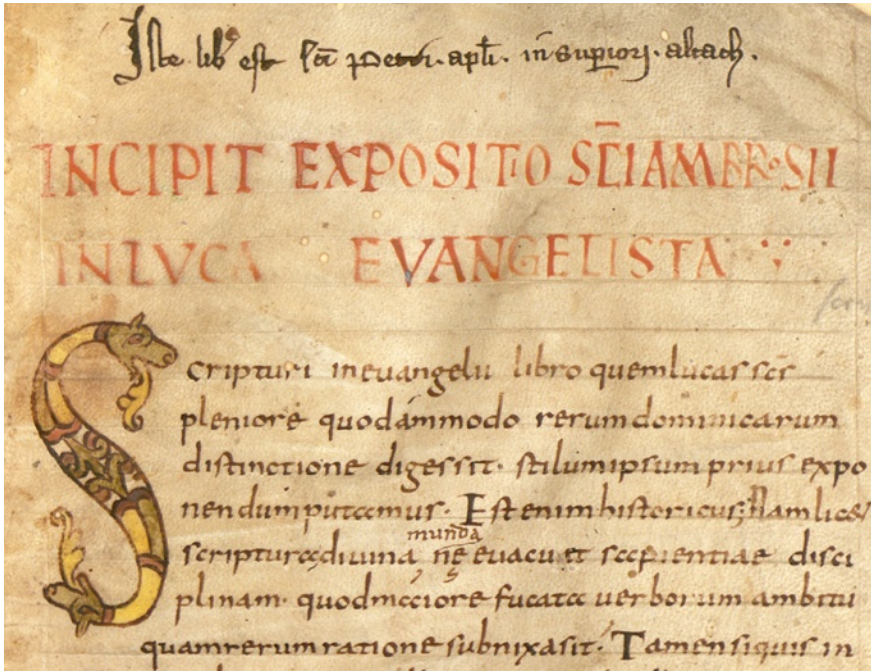 Iste lib' est sci Petri. apli. in superiori. altach.
INCIPIT EXPOSITIO SCI AMBROSII
IN LUCA EVANGELISTA
Scripturi in evangelii libro quem lucas scs
pleniore quodammodo rerum dominicarum
distinctione digessit. stilum ipsum prius expo
nendum putamus. Est enim historicus; Nam licet
munda
scriptura divina ne evacuet sapientiae disci
plinam. quod maiore fucata verborum ambitu
quam rerum ratione subnixa sit. Tamen siquis in